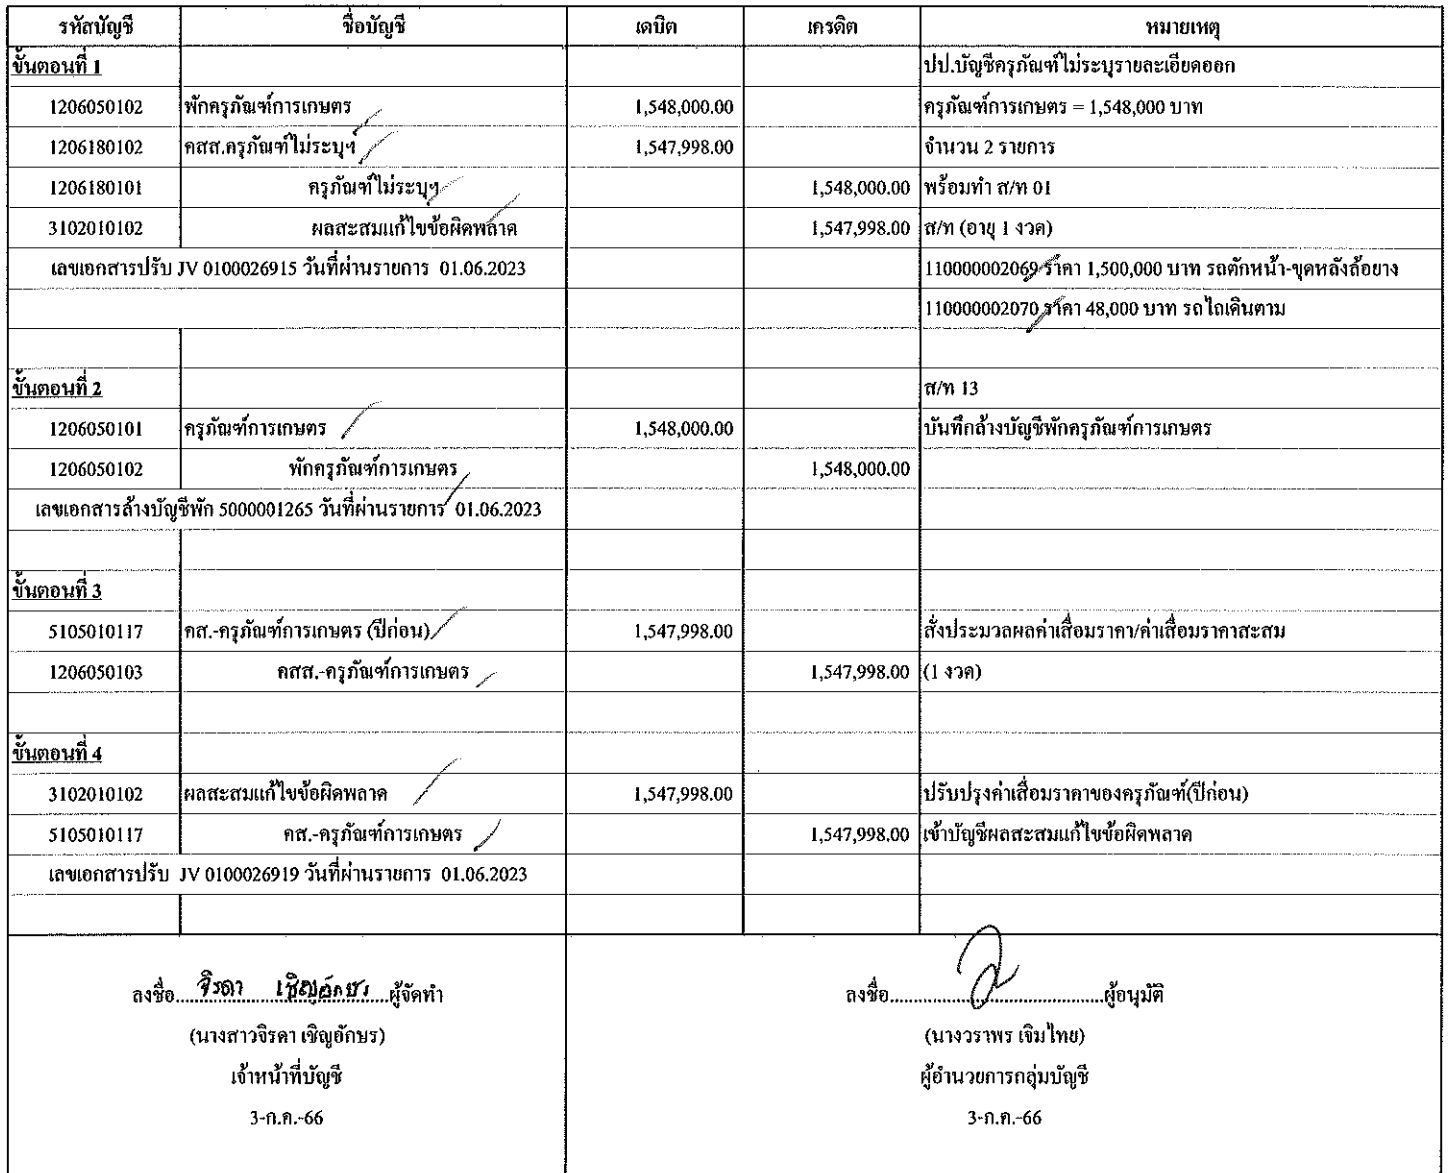 รหัสบัญชี ชื่อบัญชี เดบิต เครดิต หมายเหตุ
ขั้นตอนที่ 1 ปป.บัญชีครุภัณฑ์ไม่ระบุรายละเอียดออก
1206050102 พักครุภัณฑ์การเกษตร 1,548,000.00 ครุภัณฑ์การเกษตร = 1,548,000 บาท
1206180102 คสส.ครุภัณฑ์ไม่ระบุฯ 1,547,998.00 จำนวน 2 รายการ
1206180101 ครุภัณฑ์ไม่ระบุฯ 1,548,000.00 พร้อมทำ ส/ท 01
3102010102 ผลสะสมแก้ไขข้อผิดพลาด 1,547,998.00 ส/ท (อายุ 1 งวด)
เลขเอกสารปรับ JV 0100026915 วันที่ผ่านรายการ 01.06.2023 110000002069 ราคา 1,500,000 บาท รถตักหน้า-ขุดหลังล้อยาง
110000002070 ราคา 48,000 บาท รถไถเดินตาม
ขั้นตอนที่ 2 ส/ท 13
1206050101 ครุภัณฑ์การเกษตร 1,548,000.00 บันทึกล้างบัญชีพักครุภัณฑ์การเกษตร
1206050102 พักครุภัณฑ์การเกษตร 1,548,000.00
เลขเอกสารล้างบัญชีพัก 5000001265 วันที่ผ่านรายการ 01.06.2023
ขั้นตอนที่ 3
5105010117 คส.-ครุภัณฑ์การเกษตร (ปีก่อน) 1,547,998.00 สั่งประมวลผลค่าเสื่อมราคา/ค่าเสื่อมราคาสะสม
1206050103 คสส.-ครุภัณฑ์การเกษตร 1,547,998.00 (1 งวด)
ขั้นตอนที่ 4
3102010102 ผลสะสมแก้ไขข้อผิดพลาด 1,547,998.00 ปรับปรุงค่าเสื่อมราคาของครุภัณฑ์(ปีก่อน)
5105010117 คส.-ครุภัณฑ์การเกษตร 1,547,998.00 เข้าบัญชีผลสะสมแก้ไขข้อผิดพลาด
เลขเอกสารปรับ JV 0100026919 วันที่ผ่านรายการ 01.06.2023
ลงชื่อ....จิรดา เชิญอักษร....ผู้จัดทำ ลงชื่อ........................ผู้อนุมัติ
(นางสาวจิรดา เชิญอักษร) (นางวราพร เจิมไทย)
เจ้าหน้าที่บัญชี ผู้อำนวยการกลุ่มบัญชี
3-ก.ค.-66 3-ก.ค.-66